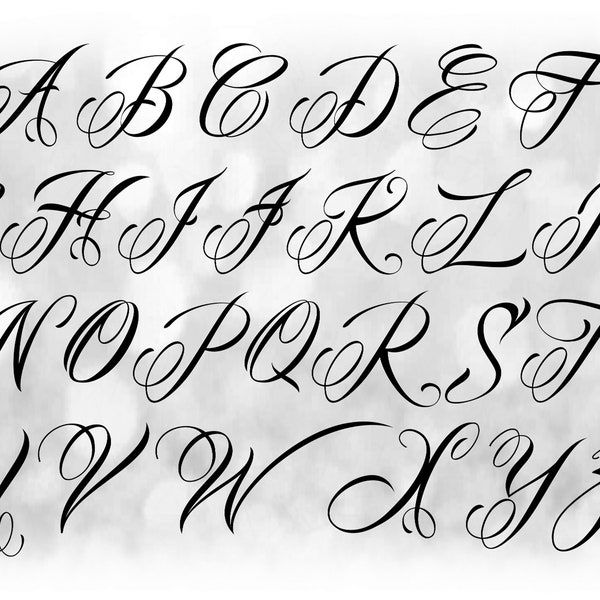 A B C D E F
H I J K L
N O P Q R S T
V W X Y Z